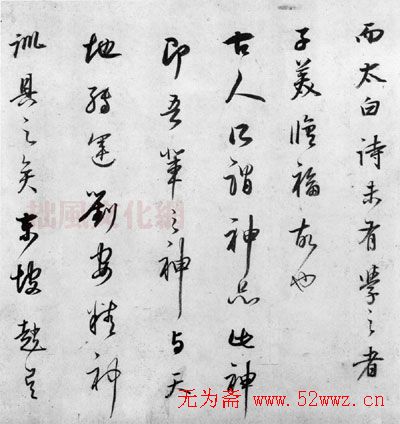 而太白诗未有學之者
子美福故也
古人所謂神品此神
即吾輩之神与天
地轉運劉安精神
訓具之矣東坡趙吴
拙風文化網
无为斋 www.52wwz.cn